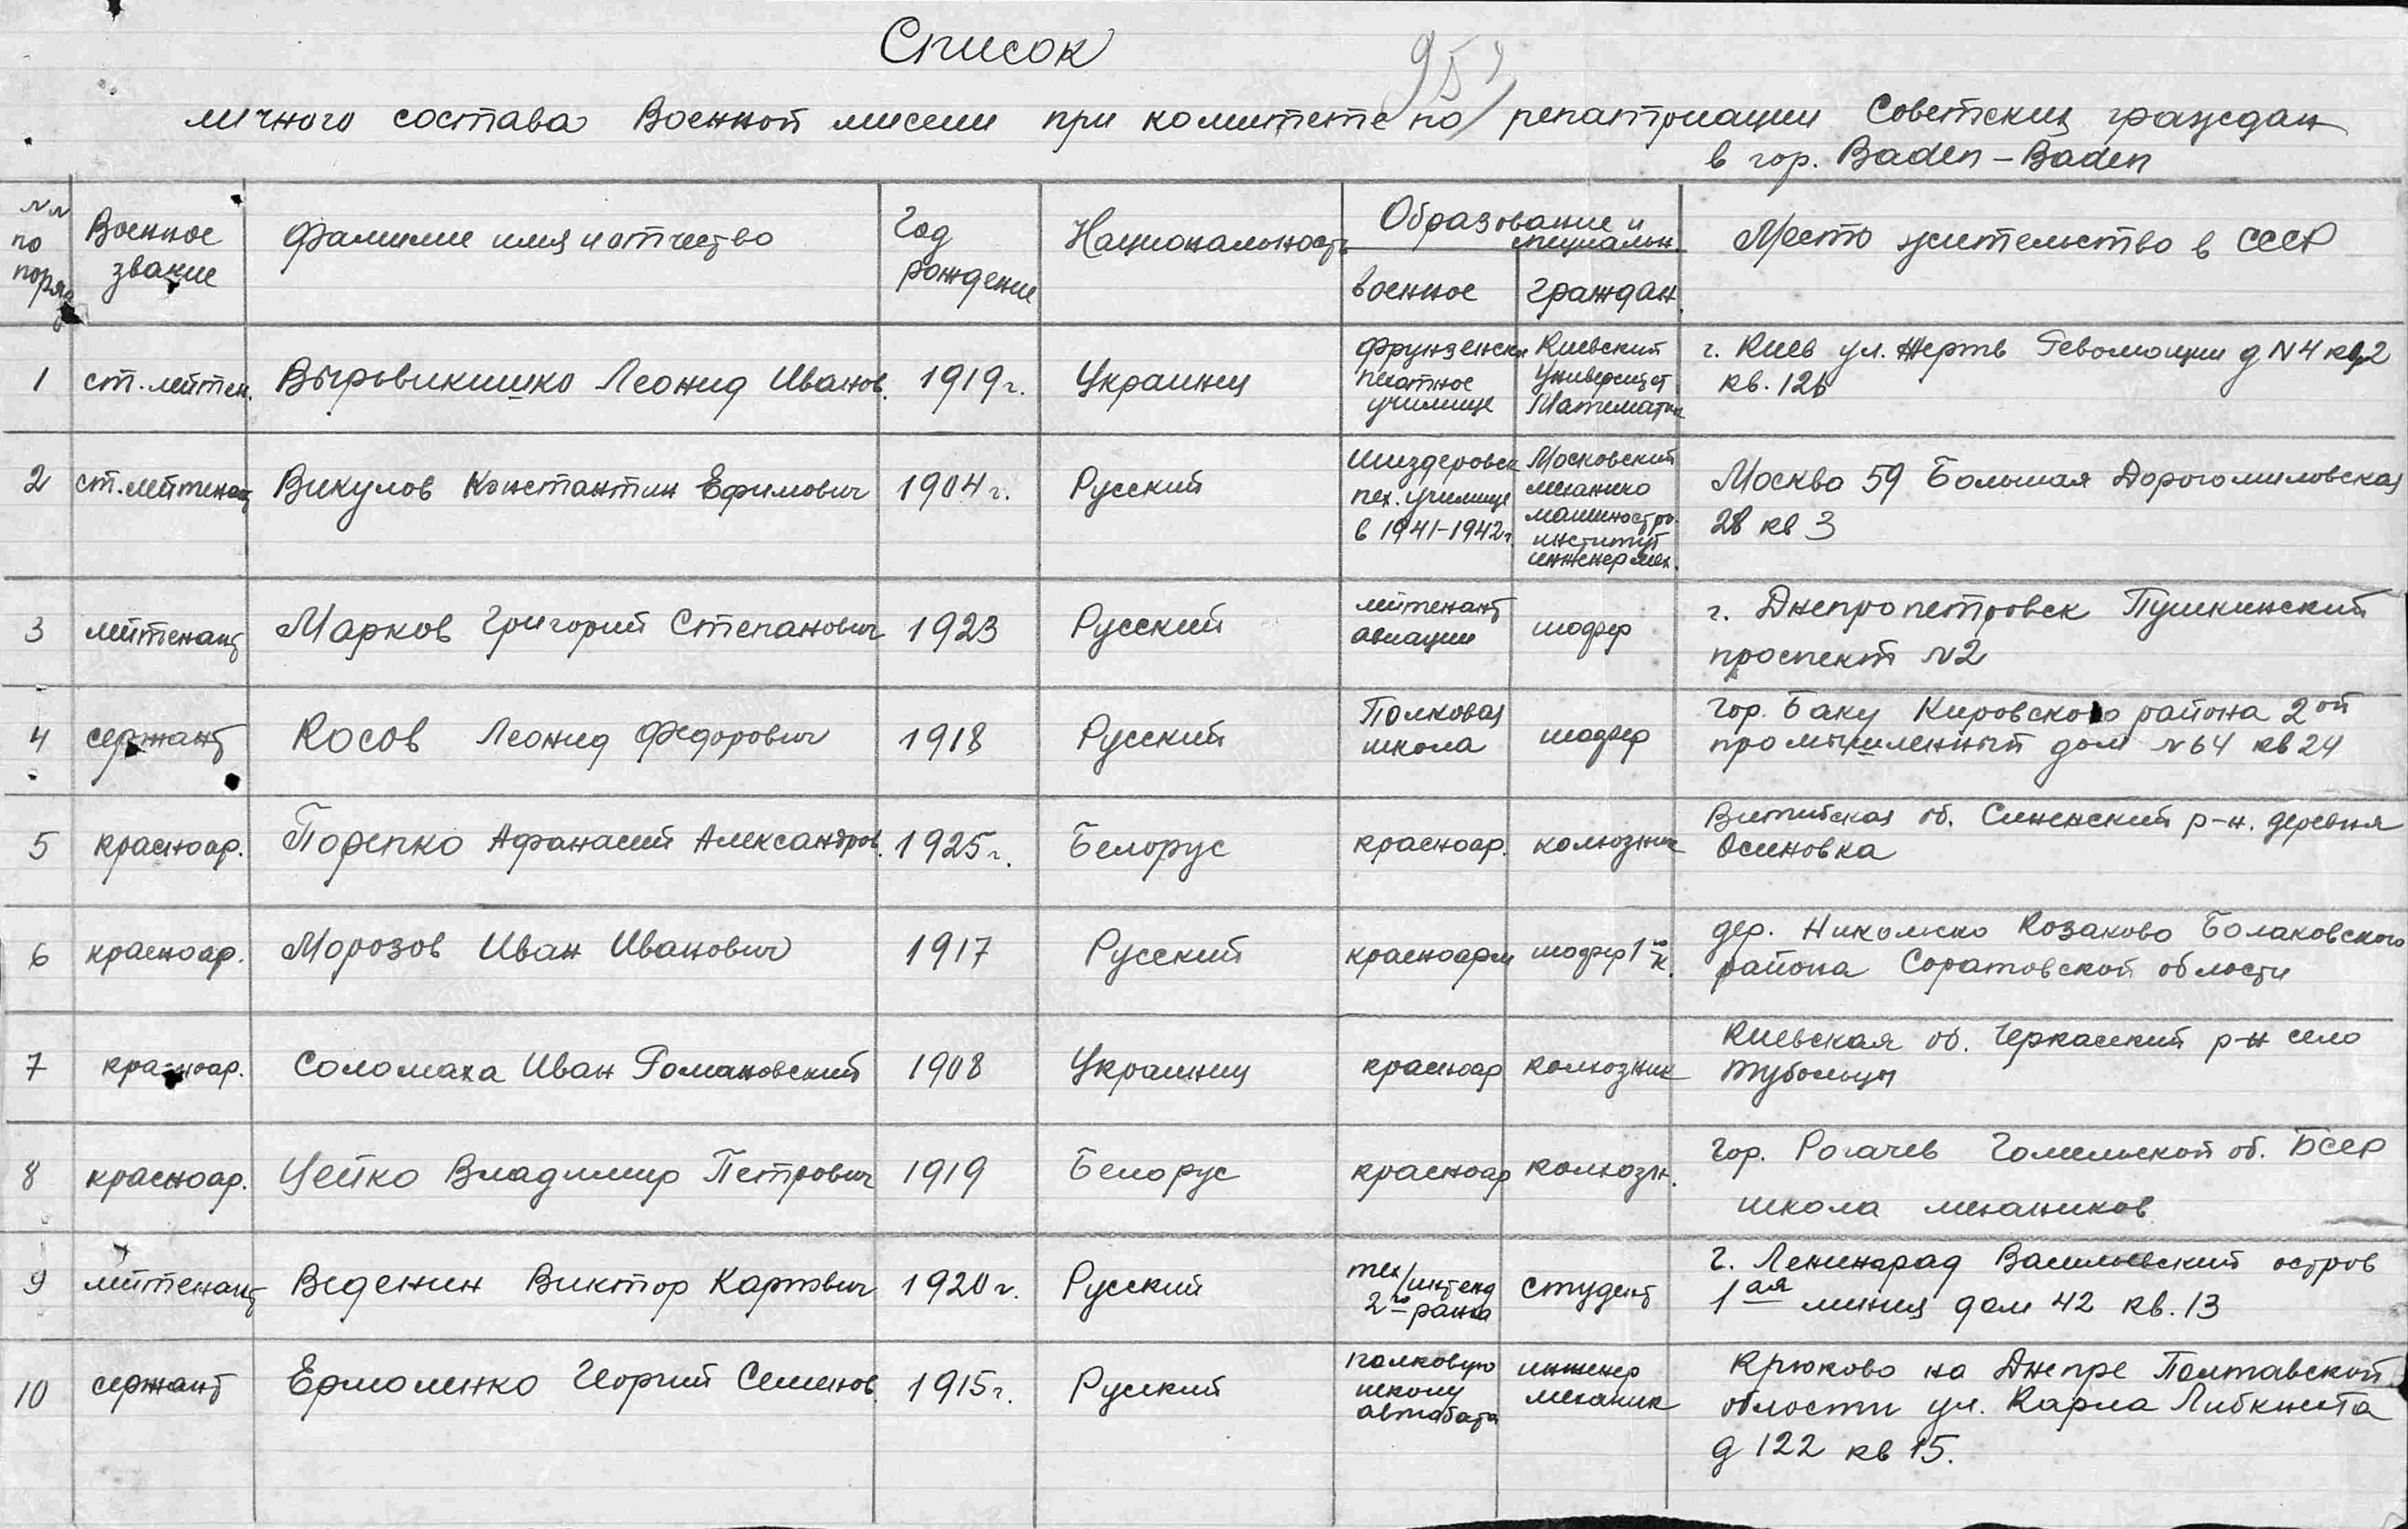 Список
личного состава Военной миссии при комитете по репатриации Советских граждан
в гор. Baden-Baden
№№ по поряд
Военное звание
Фамилие имя и отчество
Год рождение
Национальность
Образование и специальн.
военное
граждан.
Место жительство в СССР
1 ст. лейтен. Вырвикишко Леонид Иванов. 1919г. Украинец
Фрунзенск пехотное училище
Киевский Университ Математик
г. Киев ул. Жертв Революции д N4
кв. 12б
2 ст. лейтенант Викулов Константин Ефимович 1904г. Русский
пех. училище в 1941-1942г.
Московский механико машиностро. институт инженер мех.
Москва 59 Большая Дорогомиловская
28 кв 3
3 лейтенант Марков Григорий Степанович 1923 Русский
лейтенант авиации
шофер
г. Днепропетровск Пушкинский
проспект №2
4 сержант Косов Леонид Федорович 1918 Русский
Полковая школа
шофер
Гор. Баку Кировского района 2ой
промышленный дом №64 кв 24
5 красноар. Порепко Афанасий Александров. 1925г. Белорус
красноар.
колхозник
Витибская об. Сененский р-н. деревня
Осиновка
6 красноар. Морозов Иван Иванович 1917 Русский
красноарм
шофер 1го к.
дер. Николско Козаково Болаковского
района Соратовской области
7 красноар. Соломаха Иван Романовский 1908 Украинец
красноар
колхозник
Киевская об. Черкасский р-н село
Тубольцы
8 красноар. Цейко Владимир Петрович 1919 Белорус
красноар
колхозн.
Гор. Рогачев Гомельской об. БССР
школа механиков
9 лейтенант Веденин Виктор Карпович 1920г. Русский
тех/интенд 2го ранга
студент
г. Ленинград Васильевский остров
1ая линия дом 42 кв. 13
10 сержант Ермоленко Георгий Семенов. 1915г. Русский
полковую школу автобата
инженер механик
Крюково на Днепре Полтавской
области ул. Карла Либкнета
д 122 кв 15.